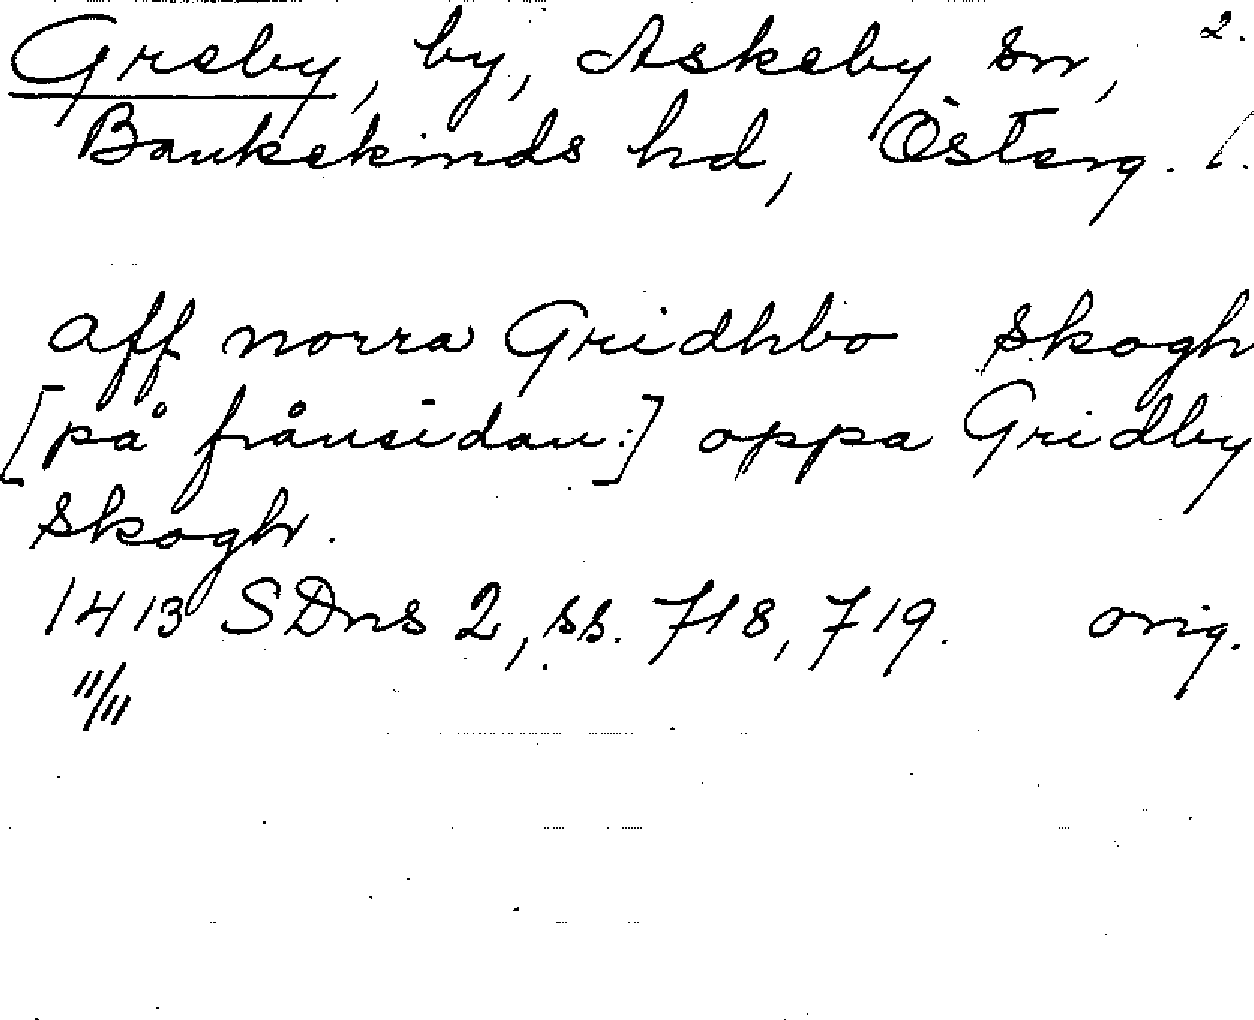 Greby, by, Askeby sn, 2.
Bankekinds hd, Österg. 1.
aff norra Gridhbo skogh
[på frånsidan:] oppa Gridby
skogh.
1413 SDns 2, ss. 718, 719. orig.
11/11